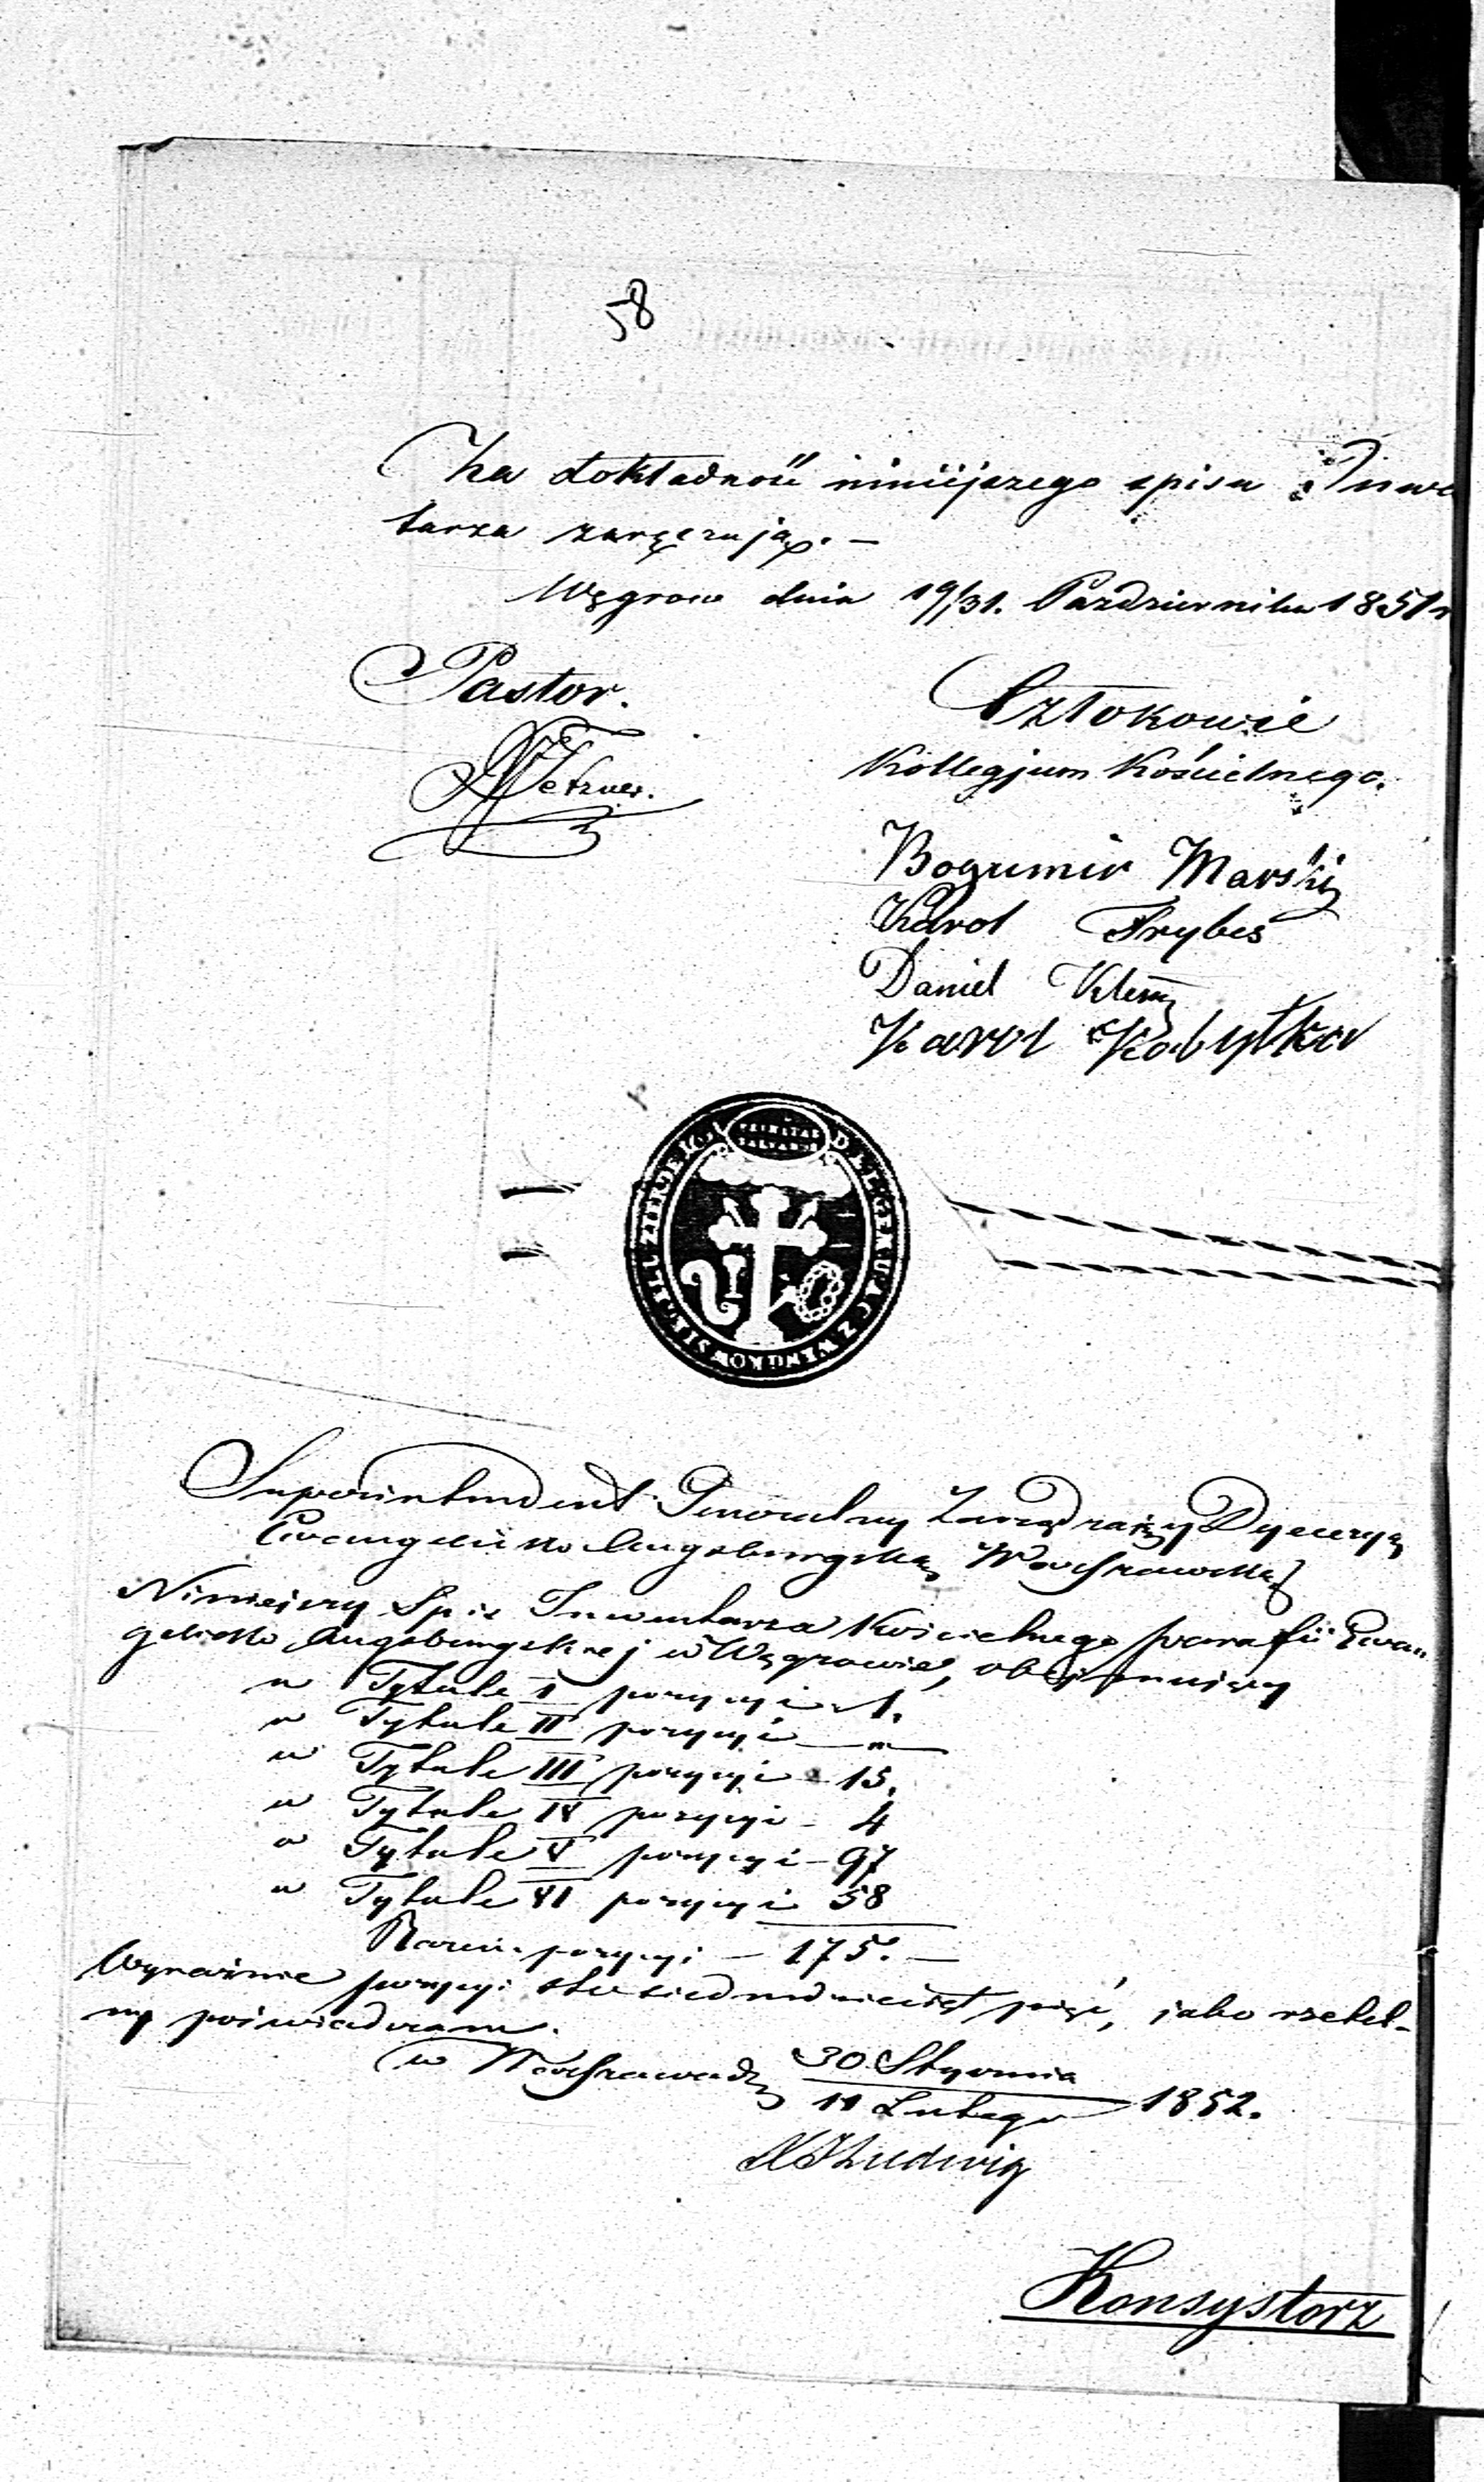 58
Za dokładność niniejszego spisu Inwe
tarza zaręczają. —
Węgrow dnia 19/31. Pazdziernika 1851 r
Pastor.
Człokowie
Kollegjum Kościelnego.
Bogumir Marski
Karol Frybes
Daniel Klem
Karol Kobyłka
Superintendent Generalny Zarządzaiący Dyecezyą
Ewangelicko Augsburgską Warszawską
Niniejszy Spis Inwentarza Kościelnego parafii Ewan-
gelicko Augsburgskiej w Węgrowie, obejmuiący
w Tytule I pozycyi 1.
w Tytule II pozycyi — " —
w Tytule III pozycyi 15.
w Tytule IV pozycyi - 4
w Tytule V pozycyi - 97
w Tytule VI pozycyi 58
Razem pozycyi — 175. —
Wyraźnie pozycyi sto siedmdziesiąt pięć, jako rzetel-
ny poświadczam.
w Warszawie 30 Stycznia
11 Lutego 1852.
Ludwig
Konsystorz